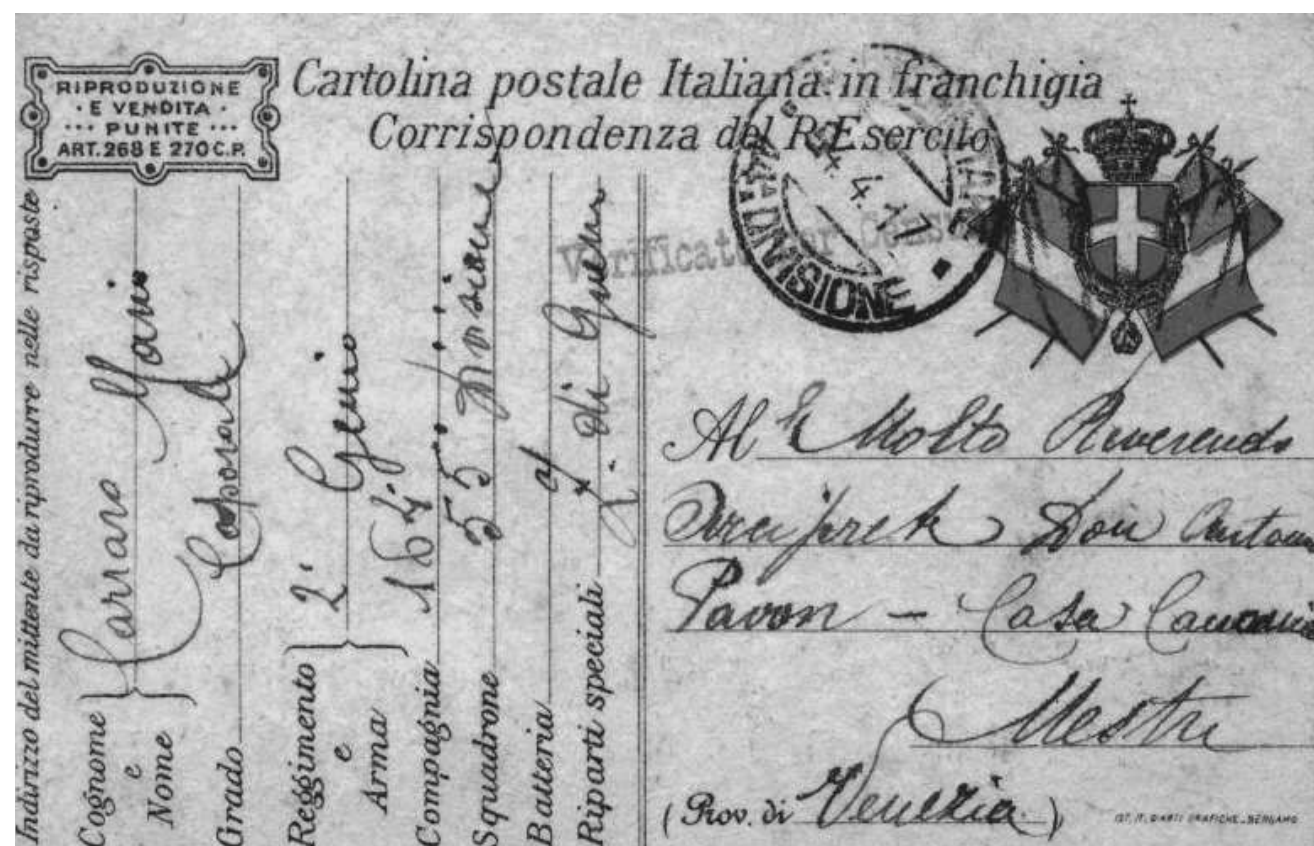 RIPRODUZIONE
· E VENDITA ·
··· PUNITE ···
ART. 268 E 270 C.P.
Cartolina postale Italiana in franchigia
Corrispondenza del R. Esercito
DIVISIONE
24.4.17
Verificato per Censura
Indirizzo del mittente da riprodurre nelle risposte
Cognome e Nome Carraro Mario
Grado Caporale
Reggimento e Arma 2° Genio
Compagnia 164ª
Squadrone 55ª Divisione
Batteria
Riparti speciali Z. di Guerra
Al Molto Reverendo
Arciprete Don Antonio
Pavon - Casa Canonica
Mestre
(Prov. di Venezia)
IST. IT. D'ARTI GRAFICHE - BERGAMO